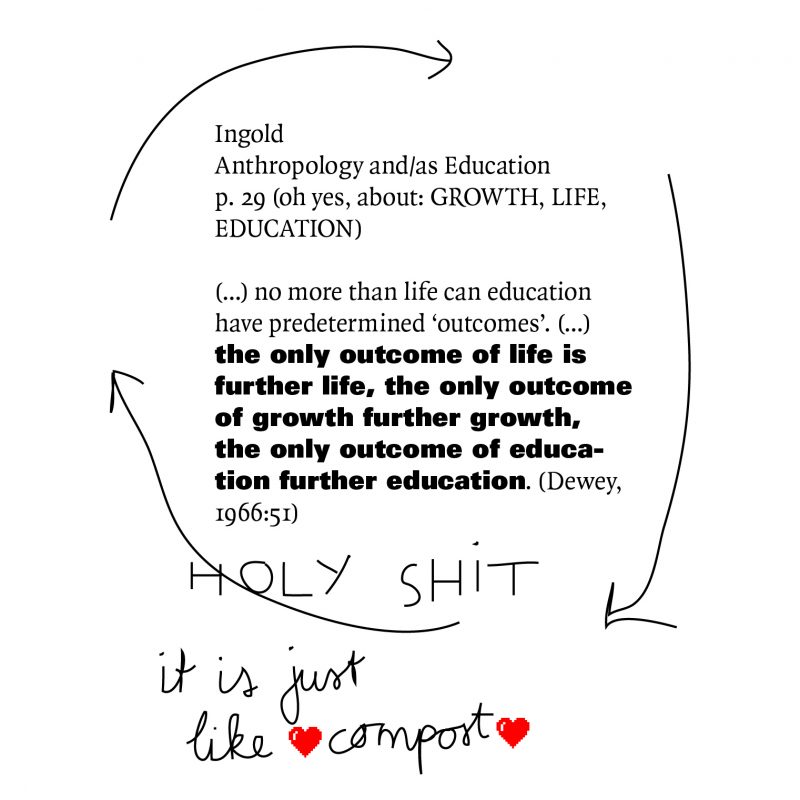 Ingold
Anthropology and/as Education
p. 29 (oh yes, about: GROWTH, LIFE,
EDUCATION)
(...) no more than life can education
have predetermined ‘outcomes’. (...)
the only outcome of life is
further life, the only outcome
of growth further growth,
the only outcome of educa-
tion further education. (Dewey,
1966:51)
HOLY SHiT
it is just
like ❤compost❤